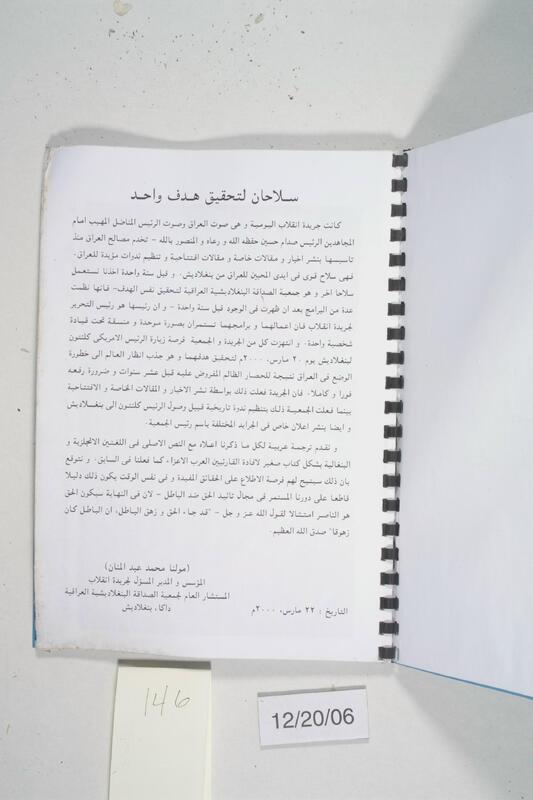 سلاحان لتحقيق هدف واحد
كانت جريدة انقلاب اليومية و هى صوت العراق وصوت الرئيس المناضل المهيب امام
المجاهدين الرئيس صدام حسين حفظه الله و رعاه و المنصور بالله - تخدم مصالح العراق منذ
تاسيسها بنشر اخبار و مقالات خاصة و مقالات افتتاحية و تنظيم ندوات مؤيدة للعراق.
فهى سلاح قوى فى ايدى المحبين للعراق من بنغلاديش. و قبل سنة واحدة اخذنا نستعمل
سلاحا اخر و هو جمعية الصداقة البنغلاديشية العراقية لتحقيق نفس الهدف- فانها نظمت
عدة من البرامج بعد ان ظهرت فى الوجود قبل سنة واحدة - و ان رئيسها هو رئيس التحرير
لجريدة انقلاب فان اعمالهما و برامجهما تستمران بصورة موحدة و منسقة تحت قيادة
شخصية واحدة. و انتهزت كل من الجريدة و الجمعية فرصة زيارة الرئيس الامريكى كلنتون
لبنغلاديش يوم ٢٠ مارس، ٢٠٠٠م لتحقيق هدفهما و هو جذب انظار العالم الى خطورة
الوضع فى العراق نتيجة للحصار الظالم المفروض عليه قبل عشر سنوات و ضرورة رفعه
فورا و كاملا. فان الجريدة فعلت ذلك بواسطة نشر الاخبار و المقالات الخاصة و الافتتاحية
بينما فعلت الجمعية ذلك بتنظيم ندوة تاريخية قبيل وصول الرئيس كلنتون الى بنغلاديش
و ايضا بنشر اعلان خاص فى الجرايد المختلفة باسم رئيس الجمعية.
و نقدم ترجمة عربية لكل ما ذكرنا اعلاه مع النص الاصلى فى اللغتين الانجلزية و
البنغالية بشكل كتاب صغير لافادة القارئين العرب الاعزاء كما فعلنا فى السابق. و نتوقع
بان ذلك سيتيح لهم فرصة الاطلاع على الحقائق المفيدة و فى نفس الوقت يكون ذلك دليلا
قاطعا على دورنا المستمر فى مجال تائيد الحق ضد الباطل - لان فى النهاية سيكون الحق
هو الناصر امتشالا لقول الله عز و جل - "قد جاء الحق و زهق الباطل، ان الباطل كان
زهوقا" صدق الله العظيم.
(مولنا محمد عبد المنان)
المؤسس و المدير المسؤل لجريدة انقلاب
المستشار العام لجمعية الصداقة البنغلاديشية العراقية
داكا، بنغلاديش
التاريخ : ٢٢ مارس، ٢٠٠٠م
146
12/20/06